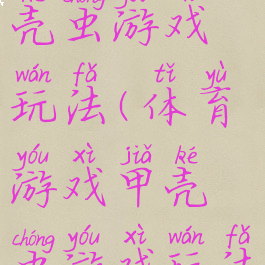 壳虫游戏
wán fǎ tǐ yù
玩法(体育
yóu xì jiǎ ké
游戏甲壳
chóng yóu xì wán fǎ
虫游戏玩法